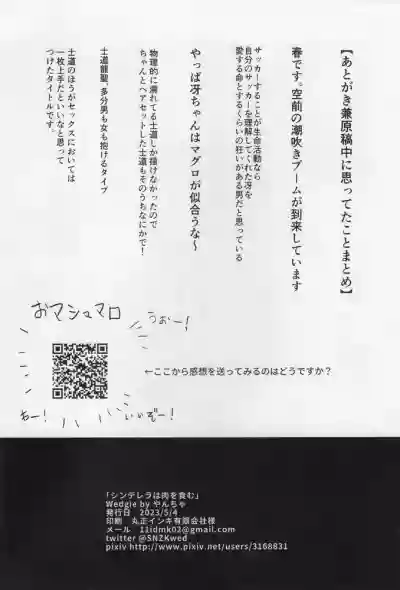 【あとがき兼原稿中に思ってたことまとめ】
春です。空前の潮吹きブームが到来しています
サッカーすることが生命活動なら
自分のサッカーを理解してくれた冴を
愛する命とするくらいの狂いがある男だと思っている
やっぱ冴ちゃんはマグロが似合うな〜
物理的に濡れてる士道しか描けなかったので
ちゃんとヘアセットした士道もそのうちなにかで！
士道龍聖、多分男も女も抱けるタイプ
士道のほうがセックスにおいては
一枚上手だといいなと思って
つけたタイトルです。
おマシュマロ
うぉー！
わー！
いいぞー！
←ここから感想を送ってみるのはどうですか？
「シンデレラは肉を食む」
Wedgie by やんちゃ
発行日　2023/5/4
印刷　丸正インキ有限会社様
メール　11idmk02@gmail.com
twitter @SNZKwed
pixiv http://www.pixiv.net/users/3168831